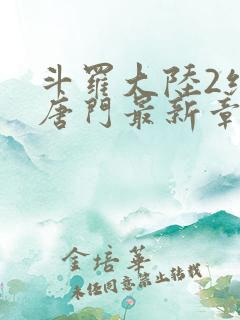 斗羅大陸2
唐門最新章
金培華
未經同意禁止轉載